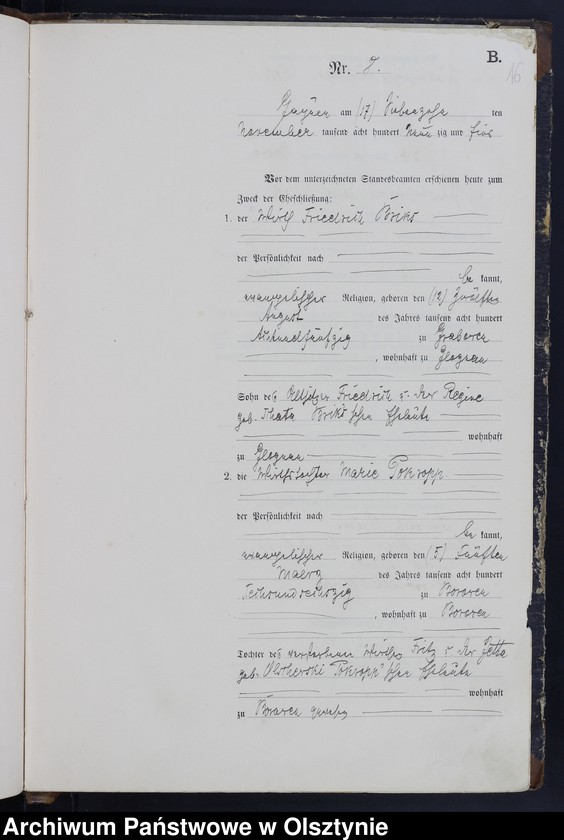 B.
16
Nr. 8.
am (17) Siebenzehn ten
November tausend acht hundert neun zig und fünf
Vor dem unterzeichneten Standesbeamten erschienen heute zum
Zweck der Eheschließung:
1. der Wirth Friedrich Briks
der Persönlichkeit nach
be kannt,
evangelischer Religion, geboren den (12) Zwölften
August des Jahres tausend acht hundert
Achtundfünfzig zu Graberen
, wohnhaft zu
Sohn des Altsitzer Friedrich u. der Regine
geb. Briks'schen Eheleute
wohnhaft
zu
2. die Wirthstochter Marie Pokropp
der Persönlichkeit nach
be kannt,
evangelischer Religion, geboren den (5) Fünften
Maerz des Jahres tausend acht hundert
zu Boraren
, wohnhaft zu Boraren
Tochter des verstorbenen Wirths Fritz u. der Jette
geb. Olscherski Pokropp'schen Eheleute
wohnhaft
zu Boraren
Archiwum Państwowe w Olsztynie